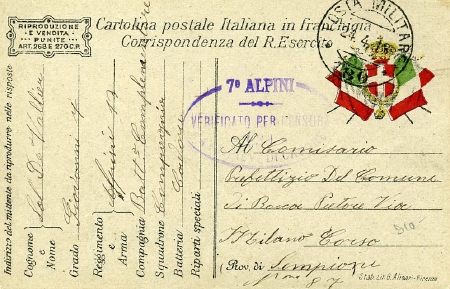 RIPRODUZIONE
E VENDITA
PUNITE
ART. 268 E 270 C.P.
Cartolina postale Italiana in franchigia
Corrispondenza del R. Esercito
POSTA MILITARE
7º ALPINI
VERIFICATO PER CENSURA
Indirizzo del mittente da riprodurre nelle risposte
Cognome e Nome
Grado
Reggimento e Arma Alpini
Compagnia
Squadrone
Batteria
Riparti speciali
Al Comisario
Prefettizio Del Comune
Di Rocca Pietore Via
Milano Corso
(Prov. di Sempione
Stab. Lit. G. Alinari - Firenze